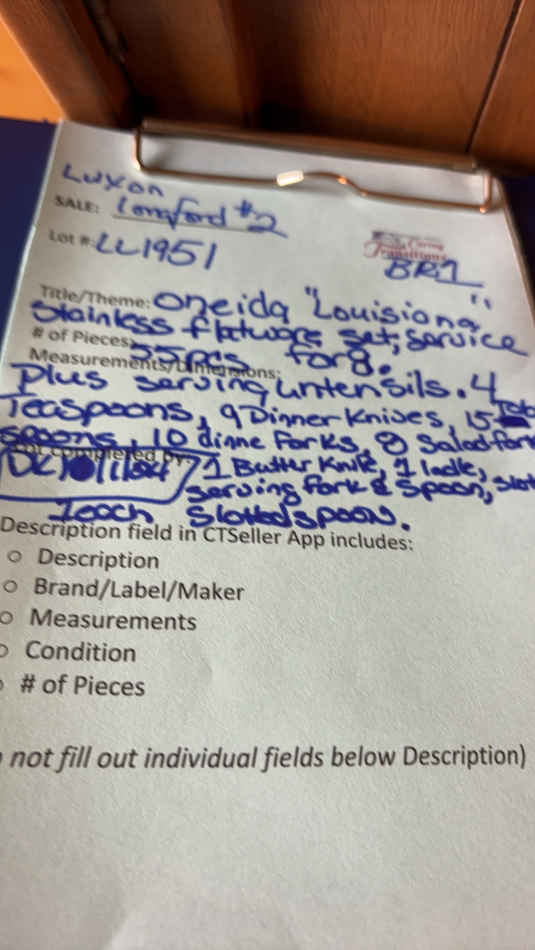 Luxon
SALE: Longford #2
Lot #: LL1951
Caring
Transitions
BR1
Title/Theme: Oneida "Louisiana"
Stainless flatware set; service
# of Pieces: 55pcs for 8.
Measurements/Dimensions:
Plus serving untensils. 4
Teaspoons, 9 Dinner Knives, 15
Spoons, 10 dinne forks, 8 Salad for
completed by
1 Butter Knife, 1 ladle,
serving fork & spoon, slot
1 each Slotted spoon.
Description field in CTSeller App includes:
○ Description
○ Brand/Label/Maker
○ Measurements
○ Condition
# of Pieces
not fill out individual fields below Description)